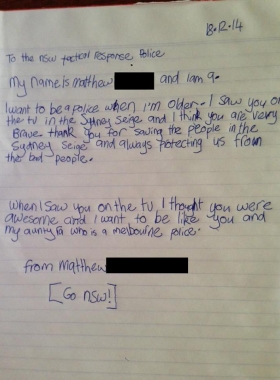 18.12.14
To the nsw tactical Response Police
My name is matthew and I am 9.
I want to be a police when I'm older. I saw you on
the tv in the Sydney Seige and I think you are very
Brave thank you for saving the people in the
Sydney Seige and always protecting us from
the bad people.
When I saw you on the tv I thought you were
awesome and I want to be like you and
my aunty who is a melbourne police.
from matthew
[Go nsw!]